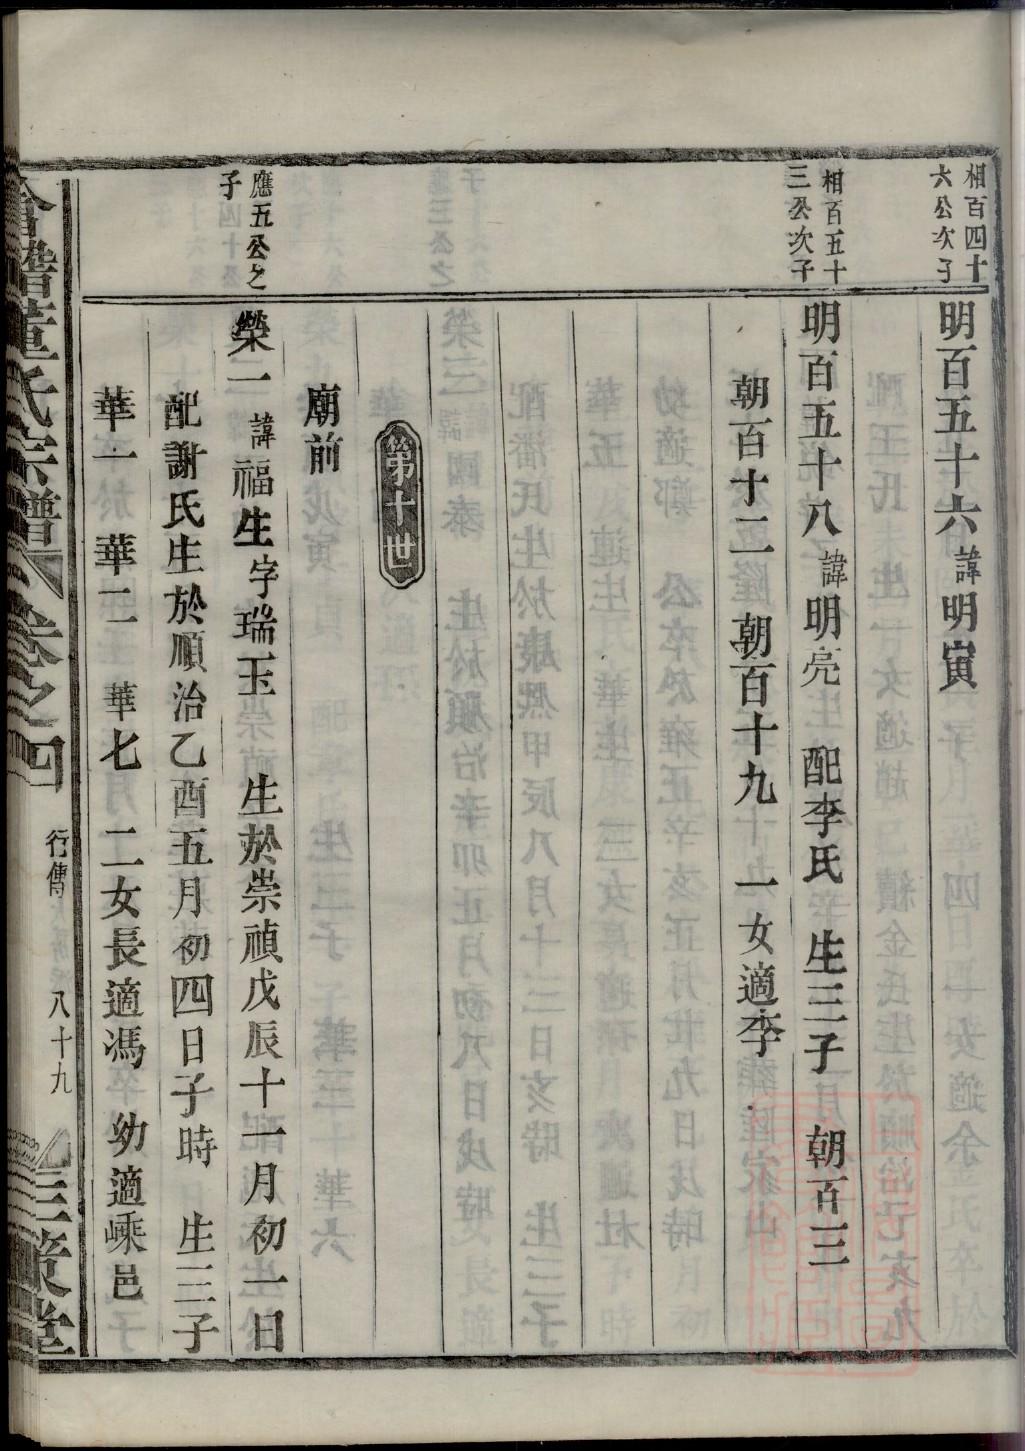 相百四十
六公次子
明百五十六諱明寅
相百五十
三公次子
明百五十八諱明亮 配李氏生三子 朝百三
朝百十二 朝百十九 一女適李
第十世
廟前
應五公之
子
榮一諱福生字瑞玉 生於崇禎戊辰十一月初一日
配謝氏生於順治乙酉五月初四日子時 生三子
華一 華二 華七 二女長適馮 幼適嵊邑
會譜董氏宗譜 卷之四 行傳 八十九 三策堂